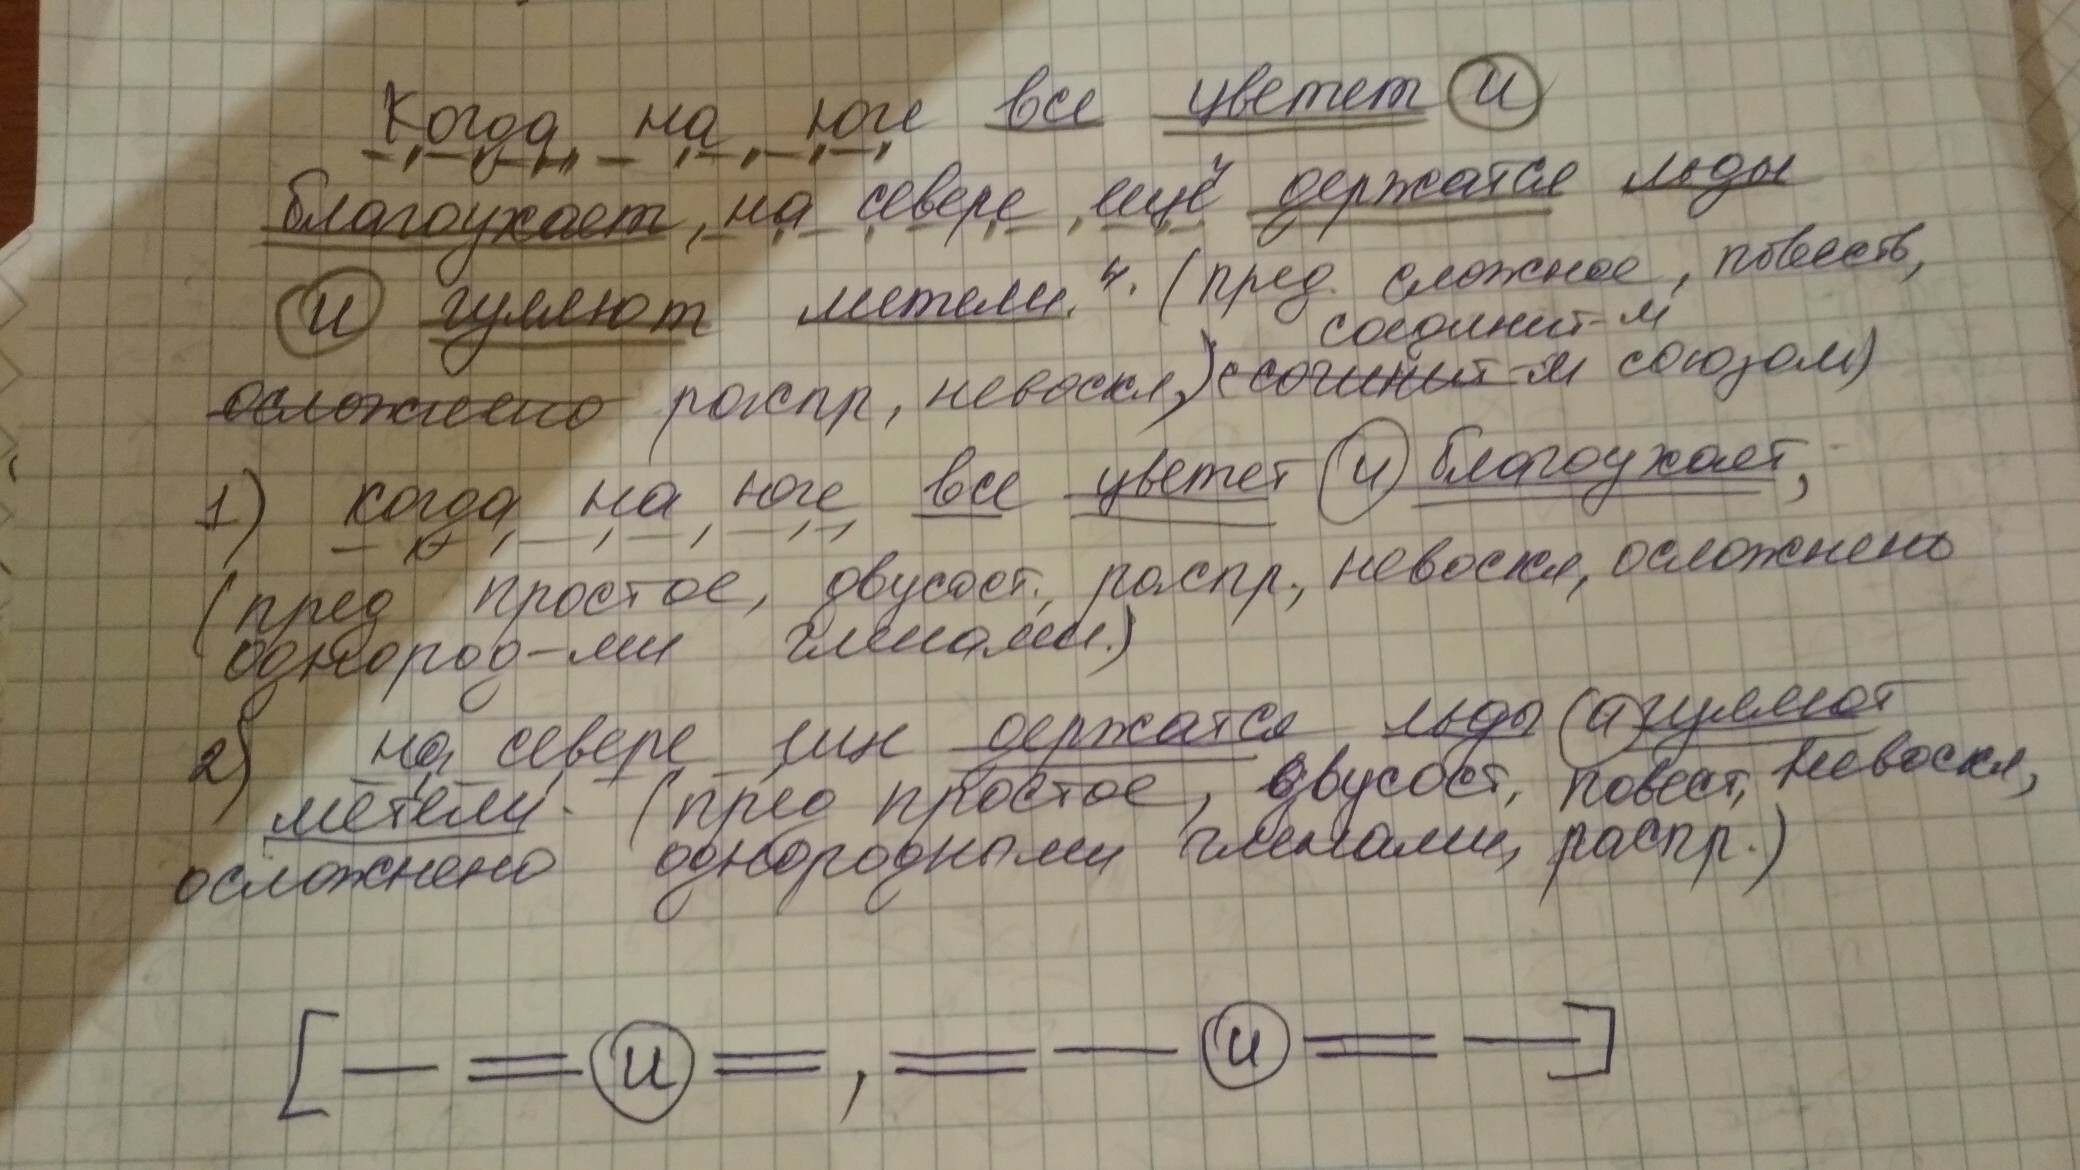 Когда на юге все цветет и
благоухает, на севере ещё держатся льды
и гуляют метели.⁴. (пред. сложное, повеств,
соединит-м
осложнено распр, невоскл,) (сочинит-м союзом)
1) когда на юге все цветет и благоухает,
(пред простое, двусост., распр., невоскл, осложнено
однород-ми членами.)
2) на севере еще держатся льды и гуляют
метели. (пред простое, двусост, повест, невоскл,
осложнено однородными членами, распр.)
[— = и =, = — и = —]